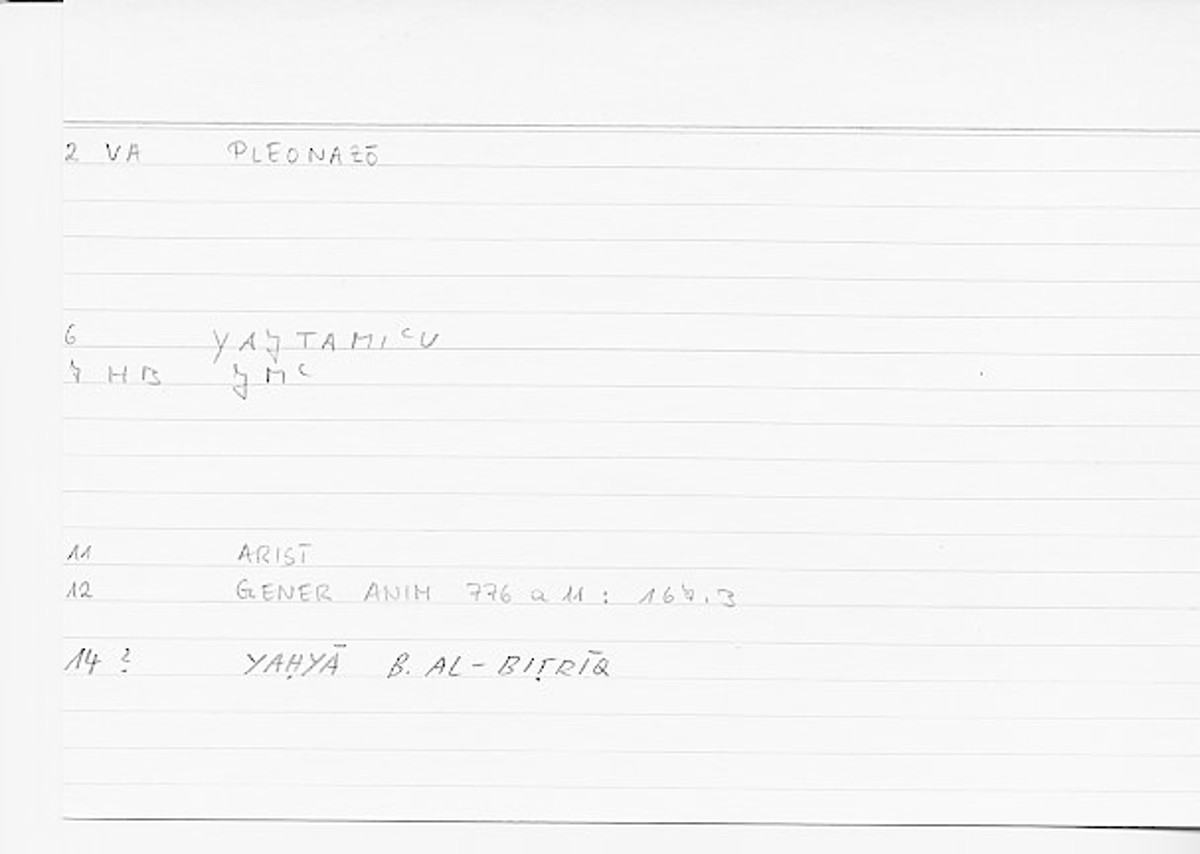 2 VA PLEONAZŌ
6 YAJTAMIʿU
7 HB JMʿ
11 ARIST
12 GENER ANIM 776 a 11 : 167.3
14 ? YAḤYĀ B. AL-BIṬRĪQ